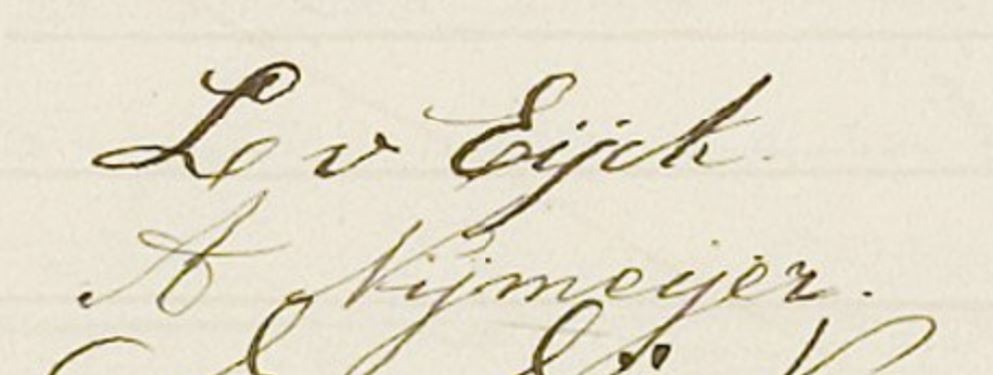 L v Eijck.
A Nijmeijer.